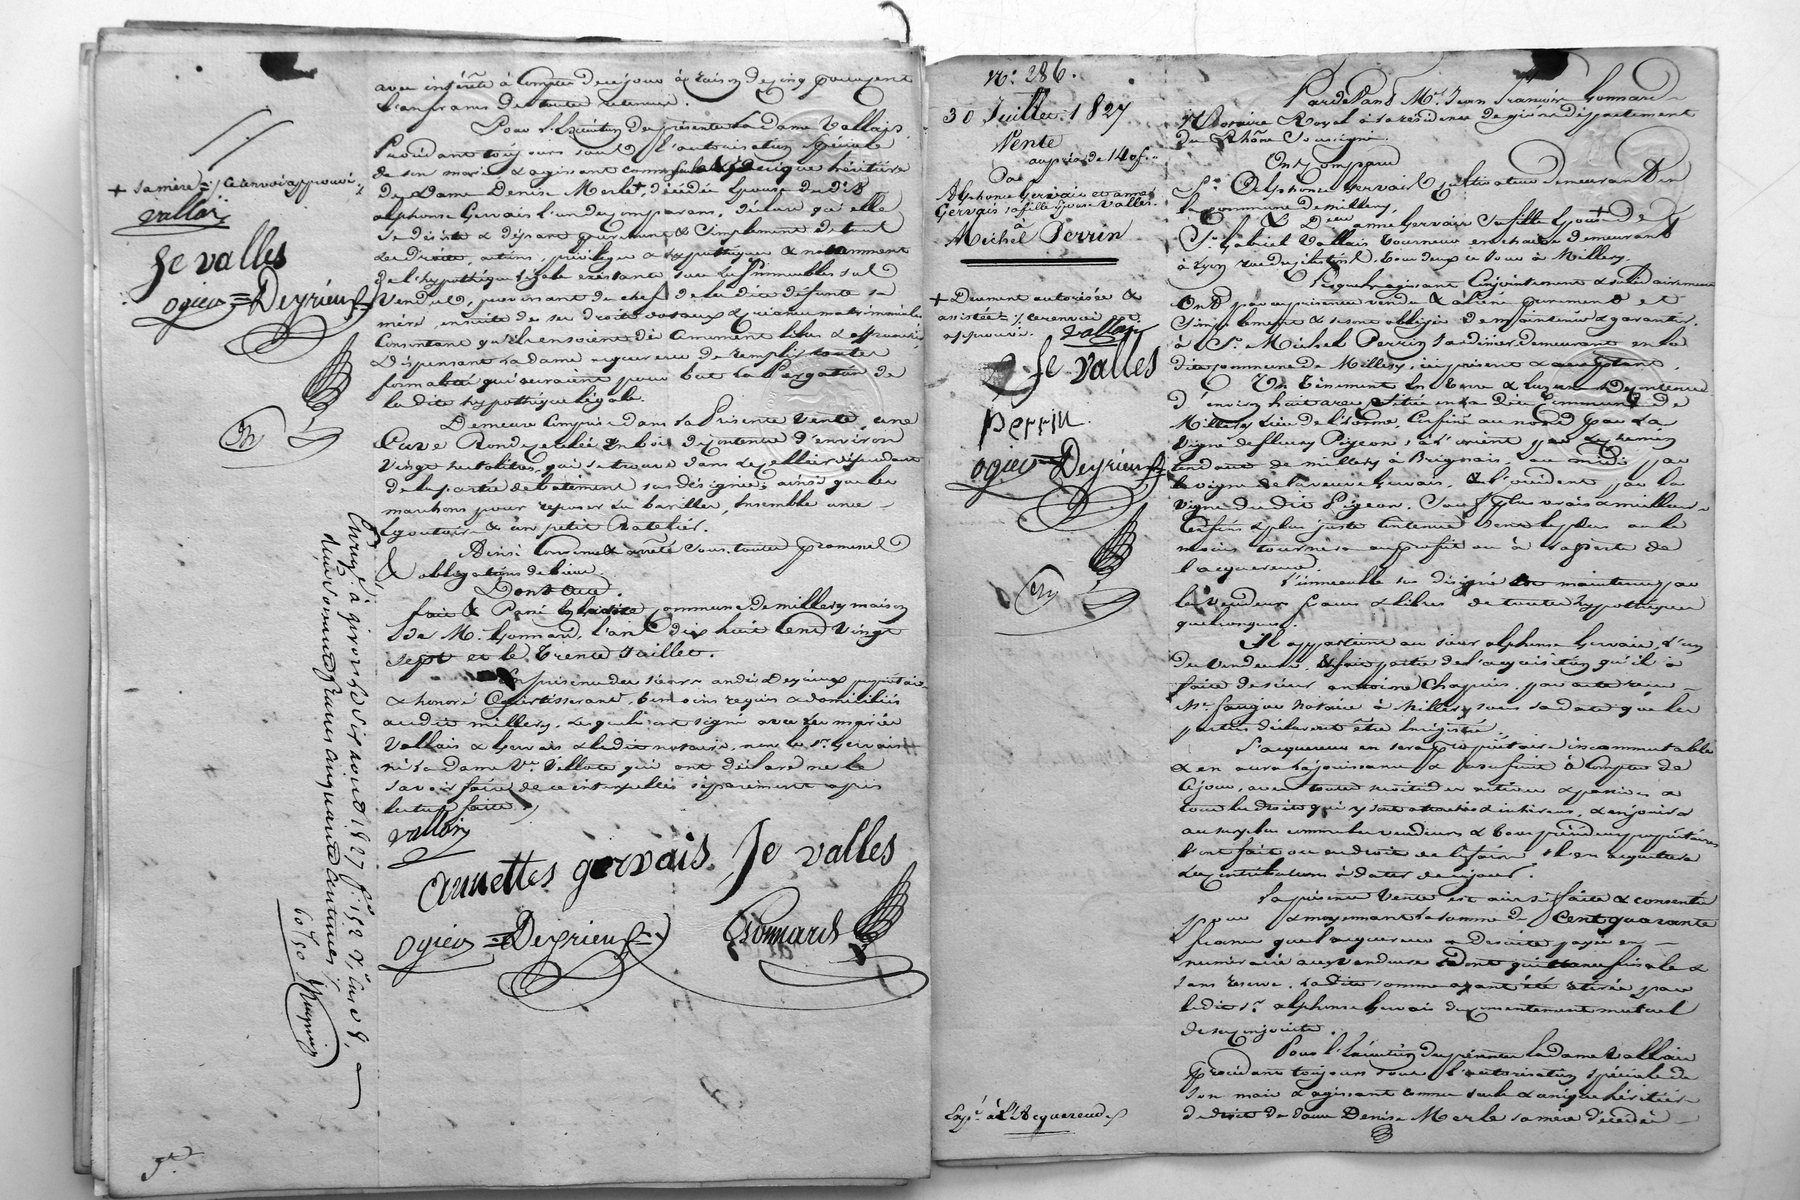 avec intérêts à compter de ce jour à raison de cinq pour cent
l'an francs de toutes retenues.
Pour l'Exécution des présentes la dame Vallais
Procédant toujours sous l'autorisation spéciale
de son mari & agissant comme seule & unique héritière
de dame Denise Merle, décédée épouse du dit
alphonse Gervais l'un des comparans, déclare qu'elle
se désiste & départ purement & simplement de tous
les droits, actions, privilèges & hypothèques & notamment
de l'hypothèque légale existante sur les immeubles sus
vendus, provenant du chef de la dite défunte sa
mère, ensuite de ses droits dotaux & créances matrimoniales
Consentant qu'ils en soient dès ce moment libres & affranchis
& dispensant la dame acquereur de remplir toutes
formalités qui auraient pour but la Purgation de
la dite hypothèque légale.
Demeure Comprise dans la Présente Vente, une
Cuve Ronde cerclée en bois de contenance d'environ
vingt hectolitres, qui se trouve dans le cellier dépendant
de la partie de bâtiment sus désignée; ainsi que les
marchons pour reposer les barilles, Ensemble une
Egouttoir & un petit Ratelier.
Ainsi Convenu & arrêté sous toutes promesses
& obligations de biens.
Dont acte.
fait & Passé en la dite Commune de millery maison
de M. Gonnard, l'an dix huit Cent Vingt
sept et le Trente Juillet.
En présence des sieurs andré Deyrieux propriétaire
& honoré Courtisserand, témoins requis & domiciliés
audit millery, lesquels ont signé avec les mariés
Vallais & Gervais & ledit notaire, non le Sr Gervais
ni la dame Ve Vellote qui ont déclaré ne le
savoir faire de ce interpellés séparément après
lecture faite
Vallais
annettes gervais Je valles
ogier = Deyrieux Gonnard
+ sa mère =/ ce renvoi approuvé
Vallais
Je valles
ogier = Deyrieux
Enregé à givors le six août 1827 fo 152 Vo Case 8, a
reçu soixante francs cinquante centimes
60f 50
No. 286.
30 Juillet 1827
Vente
au prix de 140 f
Par
Alphonse Gervais et anne
Gervais sa fille épouse Valles
à
Michel Perrin
+ Dument autorisée &
assistée / ce renvoi
approuvé. Vallais
Je valles
Perrin
ogier = Deyrieux
Expé à l'Acquereur
Pardevant Me Jean François Gonnard
Notaire Royal à la résidence de givors département
du Rhône Soussigné.
Ont Comparu
Sr Alphonse Gervais cultivateur demeurant en
la commune de Millery,
& Dame anne Gervais sa fille épouse + de
Sr Gabriel Vallais tourneur en chaises demeurant
à Lyon, tous deux ce jour à Millery.
Lesquels agissant Conjointement & solidairement
Ont par ces présentes vendu & aliéné purement et
simplement & se sont obligés de maintenir & garantir
à Sr Michel Perrin Jardinier demeurant en la
dite commune de Millery, ici présent & acceptant.
Un Ténement en terre & luzerne de contenue
d'environ huit ares Située en la dite Commune de
Millery lieu de l'orme, Confiné au nord par la
vigne de fleury Pigeon, à l'orient par le chemin
tendant de millery à Brignais, au midi par
la vigne de la veuve Gervais, & à l'occident par la
vigne du dit Pigeon. Sauf plus vrais & meilleurs
Confins & plus juste contenue dont le plus ou le
moins tournera au profit ou à la perte de
l'acquereur.
L'immeuble sus désigné est maintenu par
les vendeurs francs & libres de toutes hypothèques
quelconques.
Il appartient au sieur alphonse Gervais, l'un
des vendeurs & fait partie de l'acquisition qu'il a
faite de sieur antoine Chapuis, par acte reçu
Me fauque notaire à Millery sous sa date que les
parties déclarent être Enregistré.
L'acquereur en sera propriétaire incommutable
& en aura la jouissance & l'usufruit à compter de
ce jour, avec toutes
tous les droits qui y sont attachés & inhérens, & en jouira
au surplus comme les vendeurs & tous précédens propriétaires
l'ont fait ou eu droit de le faire. Il en acquittera
les contributions à dater de ce jour.
La présente Vente est ainsi faite & consentie
pour & moyennant la somme de Cent quarante
francs que l'acquereur a de suite payée en
numéraire aux vendeurs Dont quittance finale &
sans reserve, la dite somme ayant été retirée par
ledit Sr alphonse Gervais du consentement mutuel
de ses conjoints.
Pour l'Exécution des présentes la dame Vallais
procédant toujours sous l'autorisation spéciale de
son mari & agissant comme seule & unique héritière
de droit de dame Denise Merle sa mère décédée